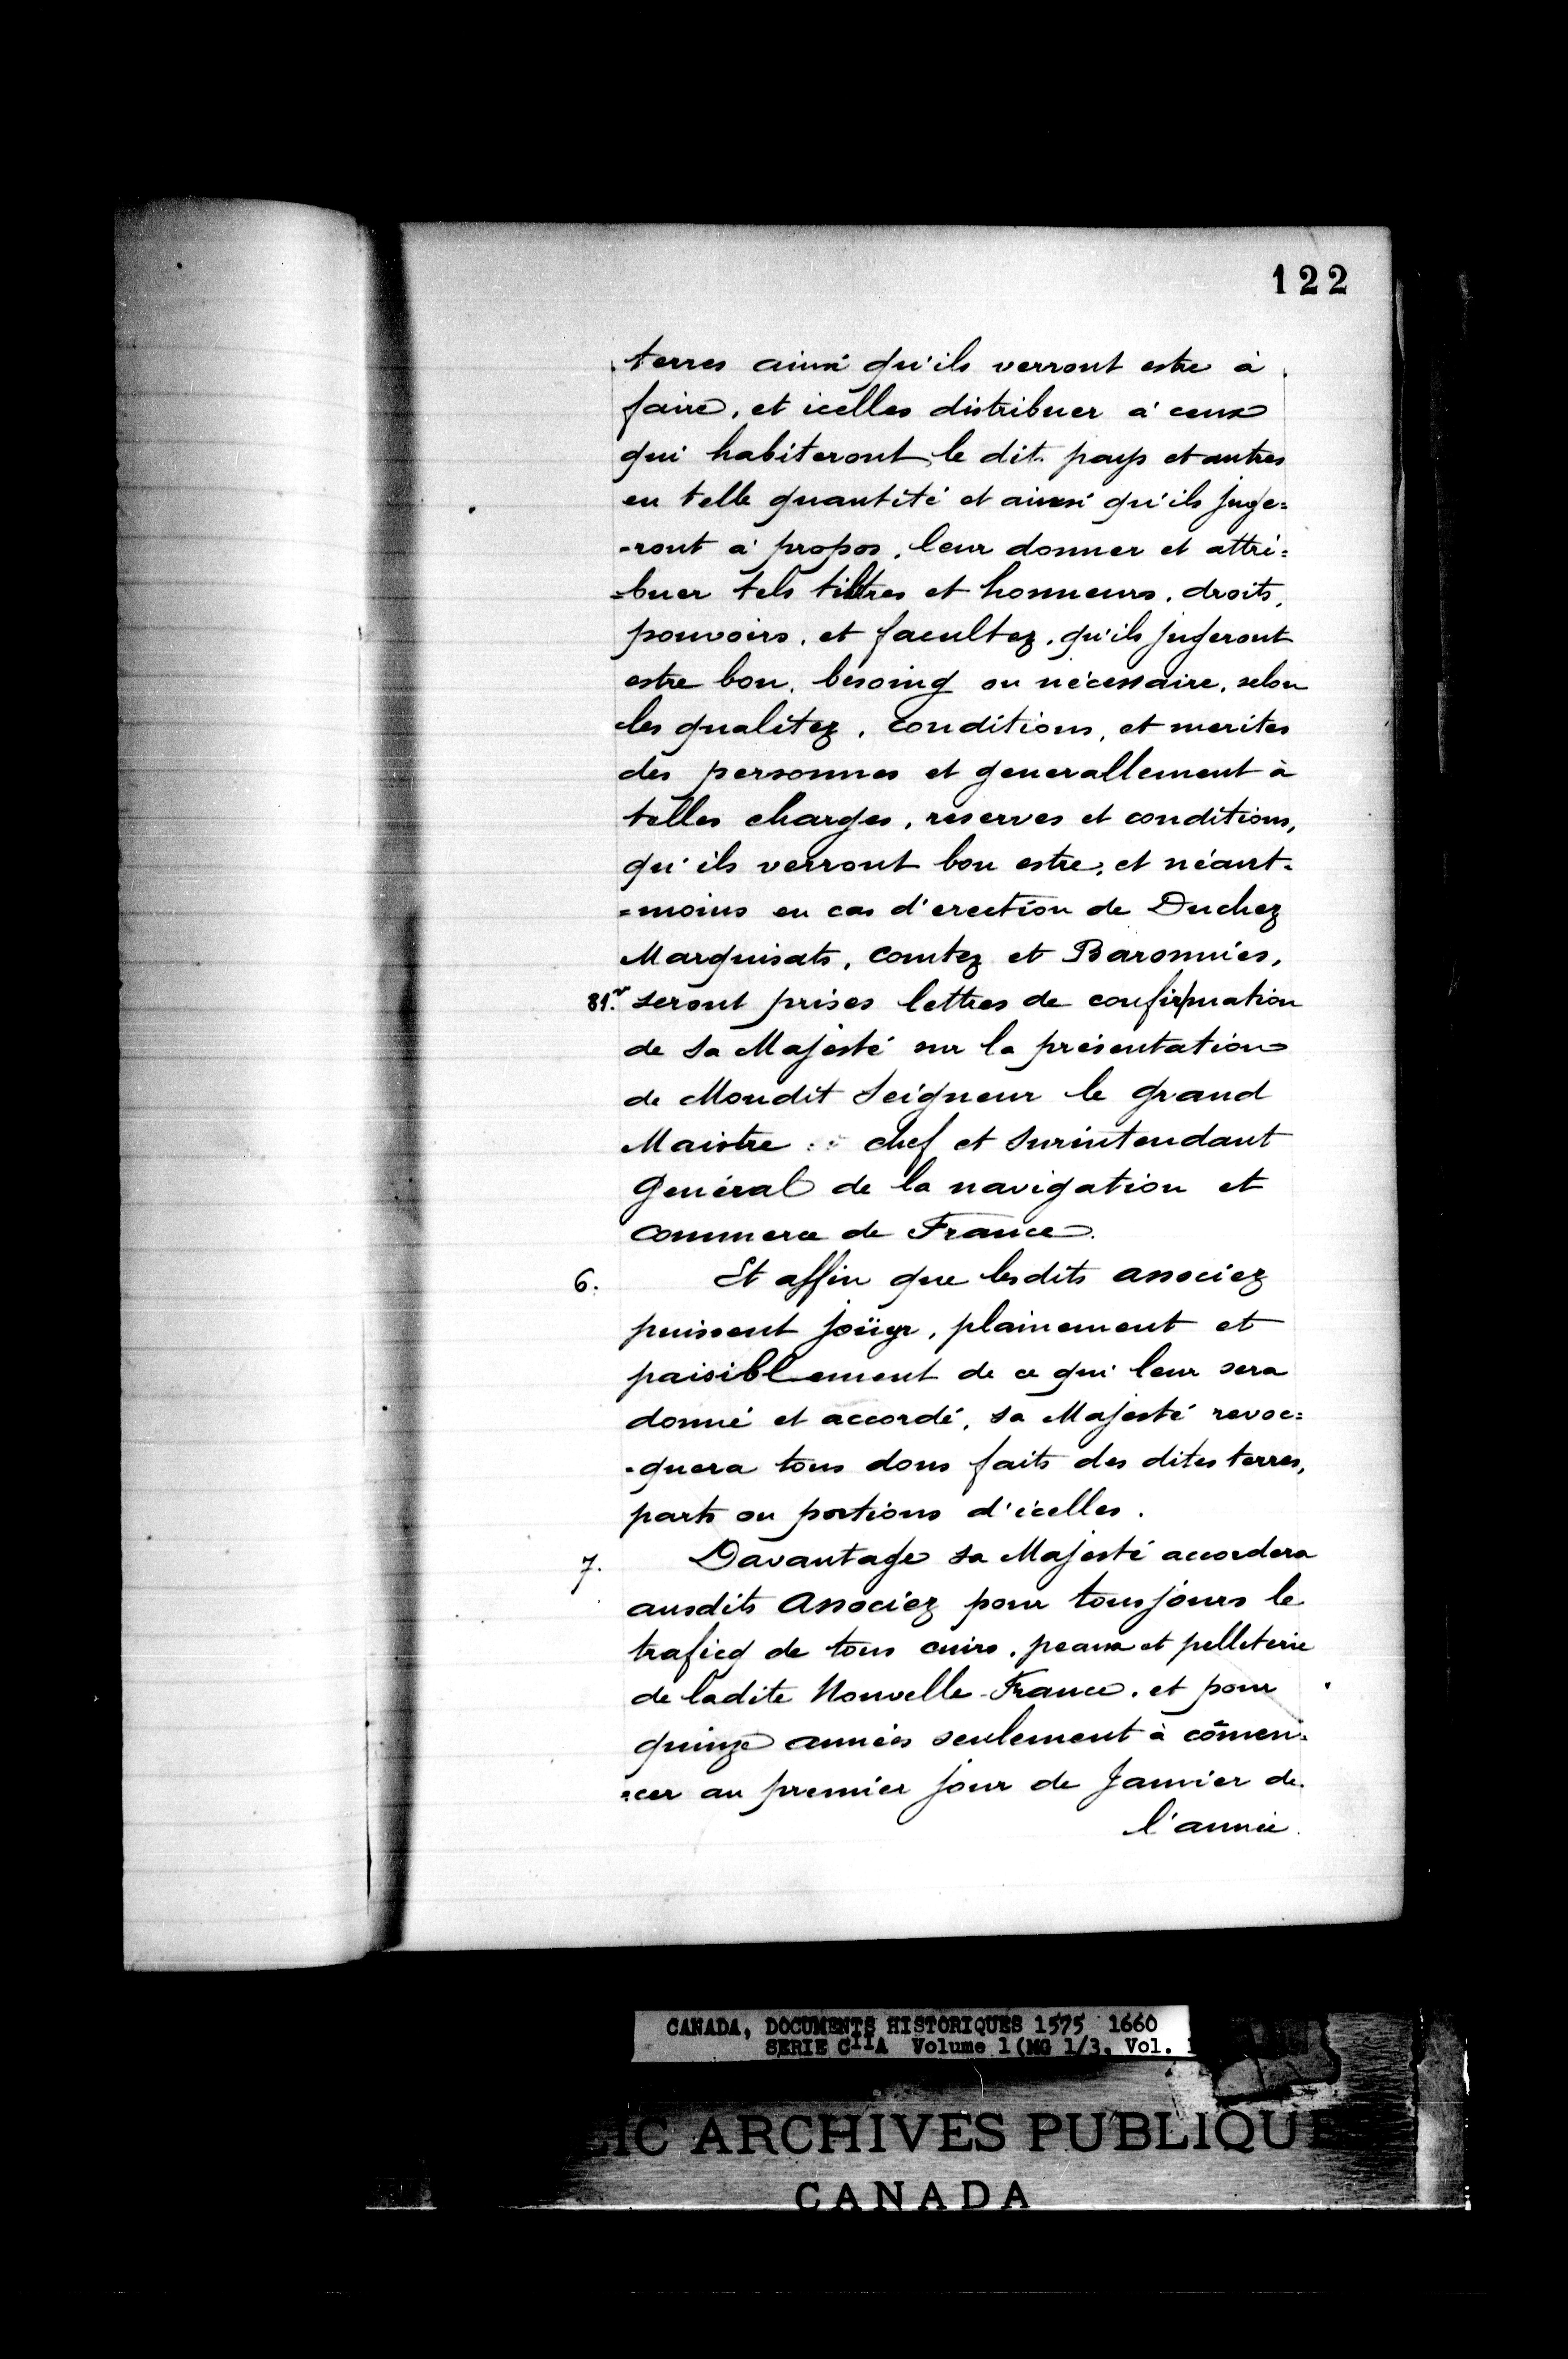 122
terres ainsi qu'ils verront estre à
faire, et icelles distribuer a' ceux
qui habiteront le dit pays et autres
en telle quantité et ainsi qu'ils juge=
-ront a' propos, leur donner et attri=
=buer tels tiltres et honneurs, droits,
pouvoirs, et facultez, qu'ils jugeront
estre bon, besoing ou nécessaire, selon
les qualitez, conditions, et merites
des personnes et generallement à
telles charges, reserves et conditions,
qu'ils verront bon estre, et néant=
=moins en cas d'erection de Duchez
Marquisats, comtez et Baronnies,
81.v seront prises lettres de confirmation
de Sa Majesté sur la présentation
de Mondit Seigneur le grand
Maistre chef et Surintendant
Général de la navigation et
commerce de France.
6. Et affin que lesdits associez
puissent joüyr, plainement et
paisiblement de ce qui leur sera
donné et accordé, sa Majesté revoc=
-quera tous dons faits des dites terres,
parts ou portions d'icelles.
7. Davantage sa Majesté accordera
ausdits Associez pour tousjours le
traficq de tous cuirs, peaux et pelleterie
de ladite Nouvelle-France, et pour
quinze années seulement à cõmen=
=cer au premier jour de Janvier de
l'année
CANADA, DOCUMENTS HISTORIQUES 1575 1660
SERIE CIIA Volume 1 (MG 1/3, Vol. 1
LIC ARCHIVES PUBLIQUE
CANADA